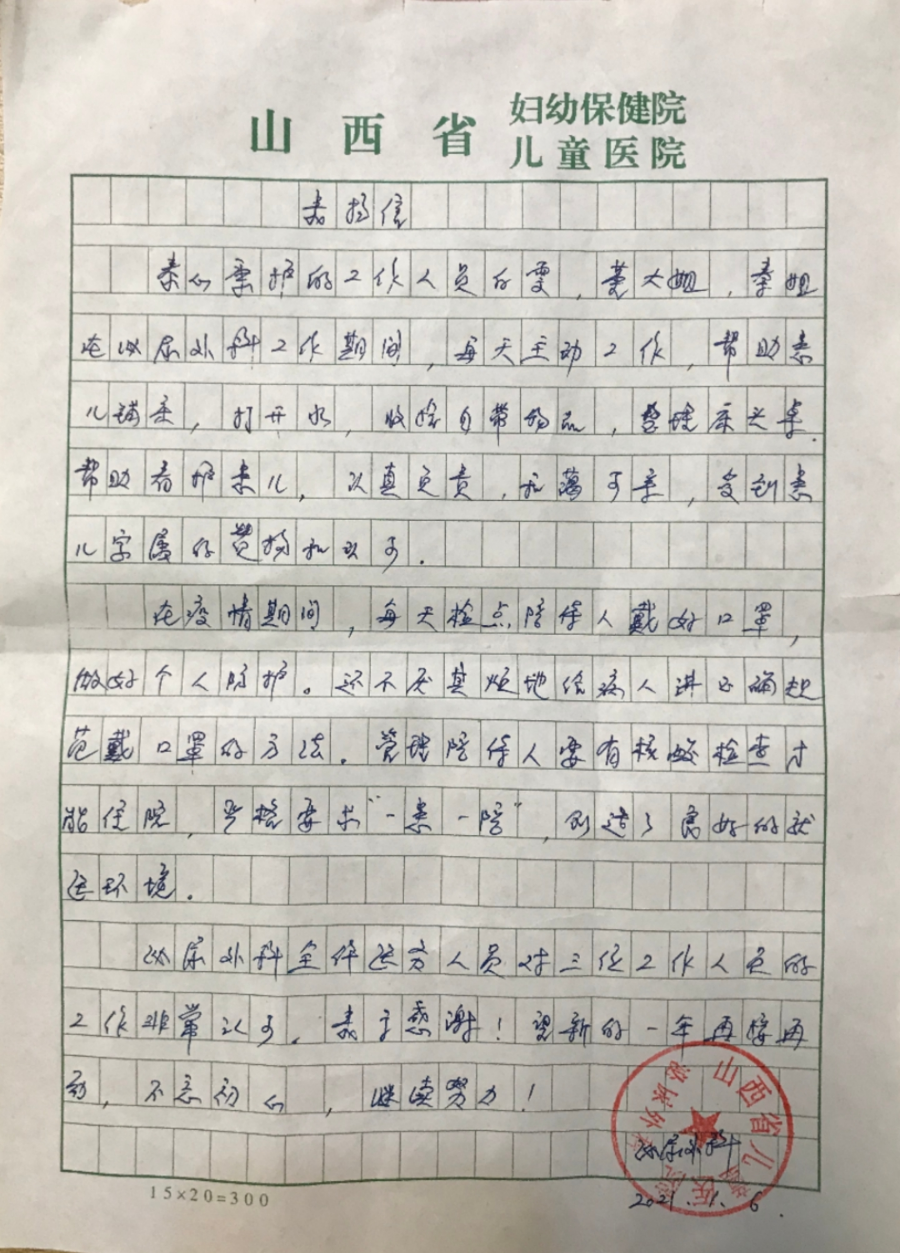 山西省 妇幼保健院
儿童医院
表扬信
泰心康护的工作人员任雯，黄大姐，秦姐
在泌尿外科工作期间，每天主动工作，帮助患
儿铺床，打开水，收拾自带物品，整理床头桌，
帮助看护患儿，认真负责，和蔼可亲，受到患
儿家属的赞扬和认可。
在疫情期间，每天检点陪侍人戴好口罩，
做好个人防护。还不厌其烦地给病人讲正确规
范戴口罩的方法。管理陪侍人要有核酸检查才
能住院，严格要求“一患一陪”，创造了良好的就
医环境。
泌尿外科全体医务人员对三位工作人员的
工作非常认可，表示感谢！望新的一年再接再
劲，不忘初心，继续努力！
泌尿外科
2021.1.6.
山西省儿童医院
泌尿外科
15×20=300